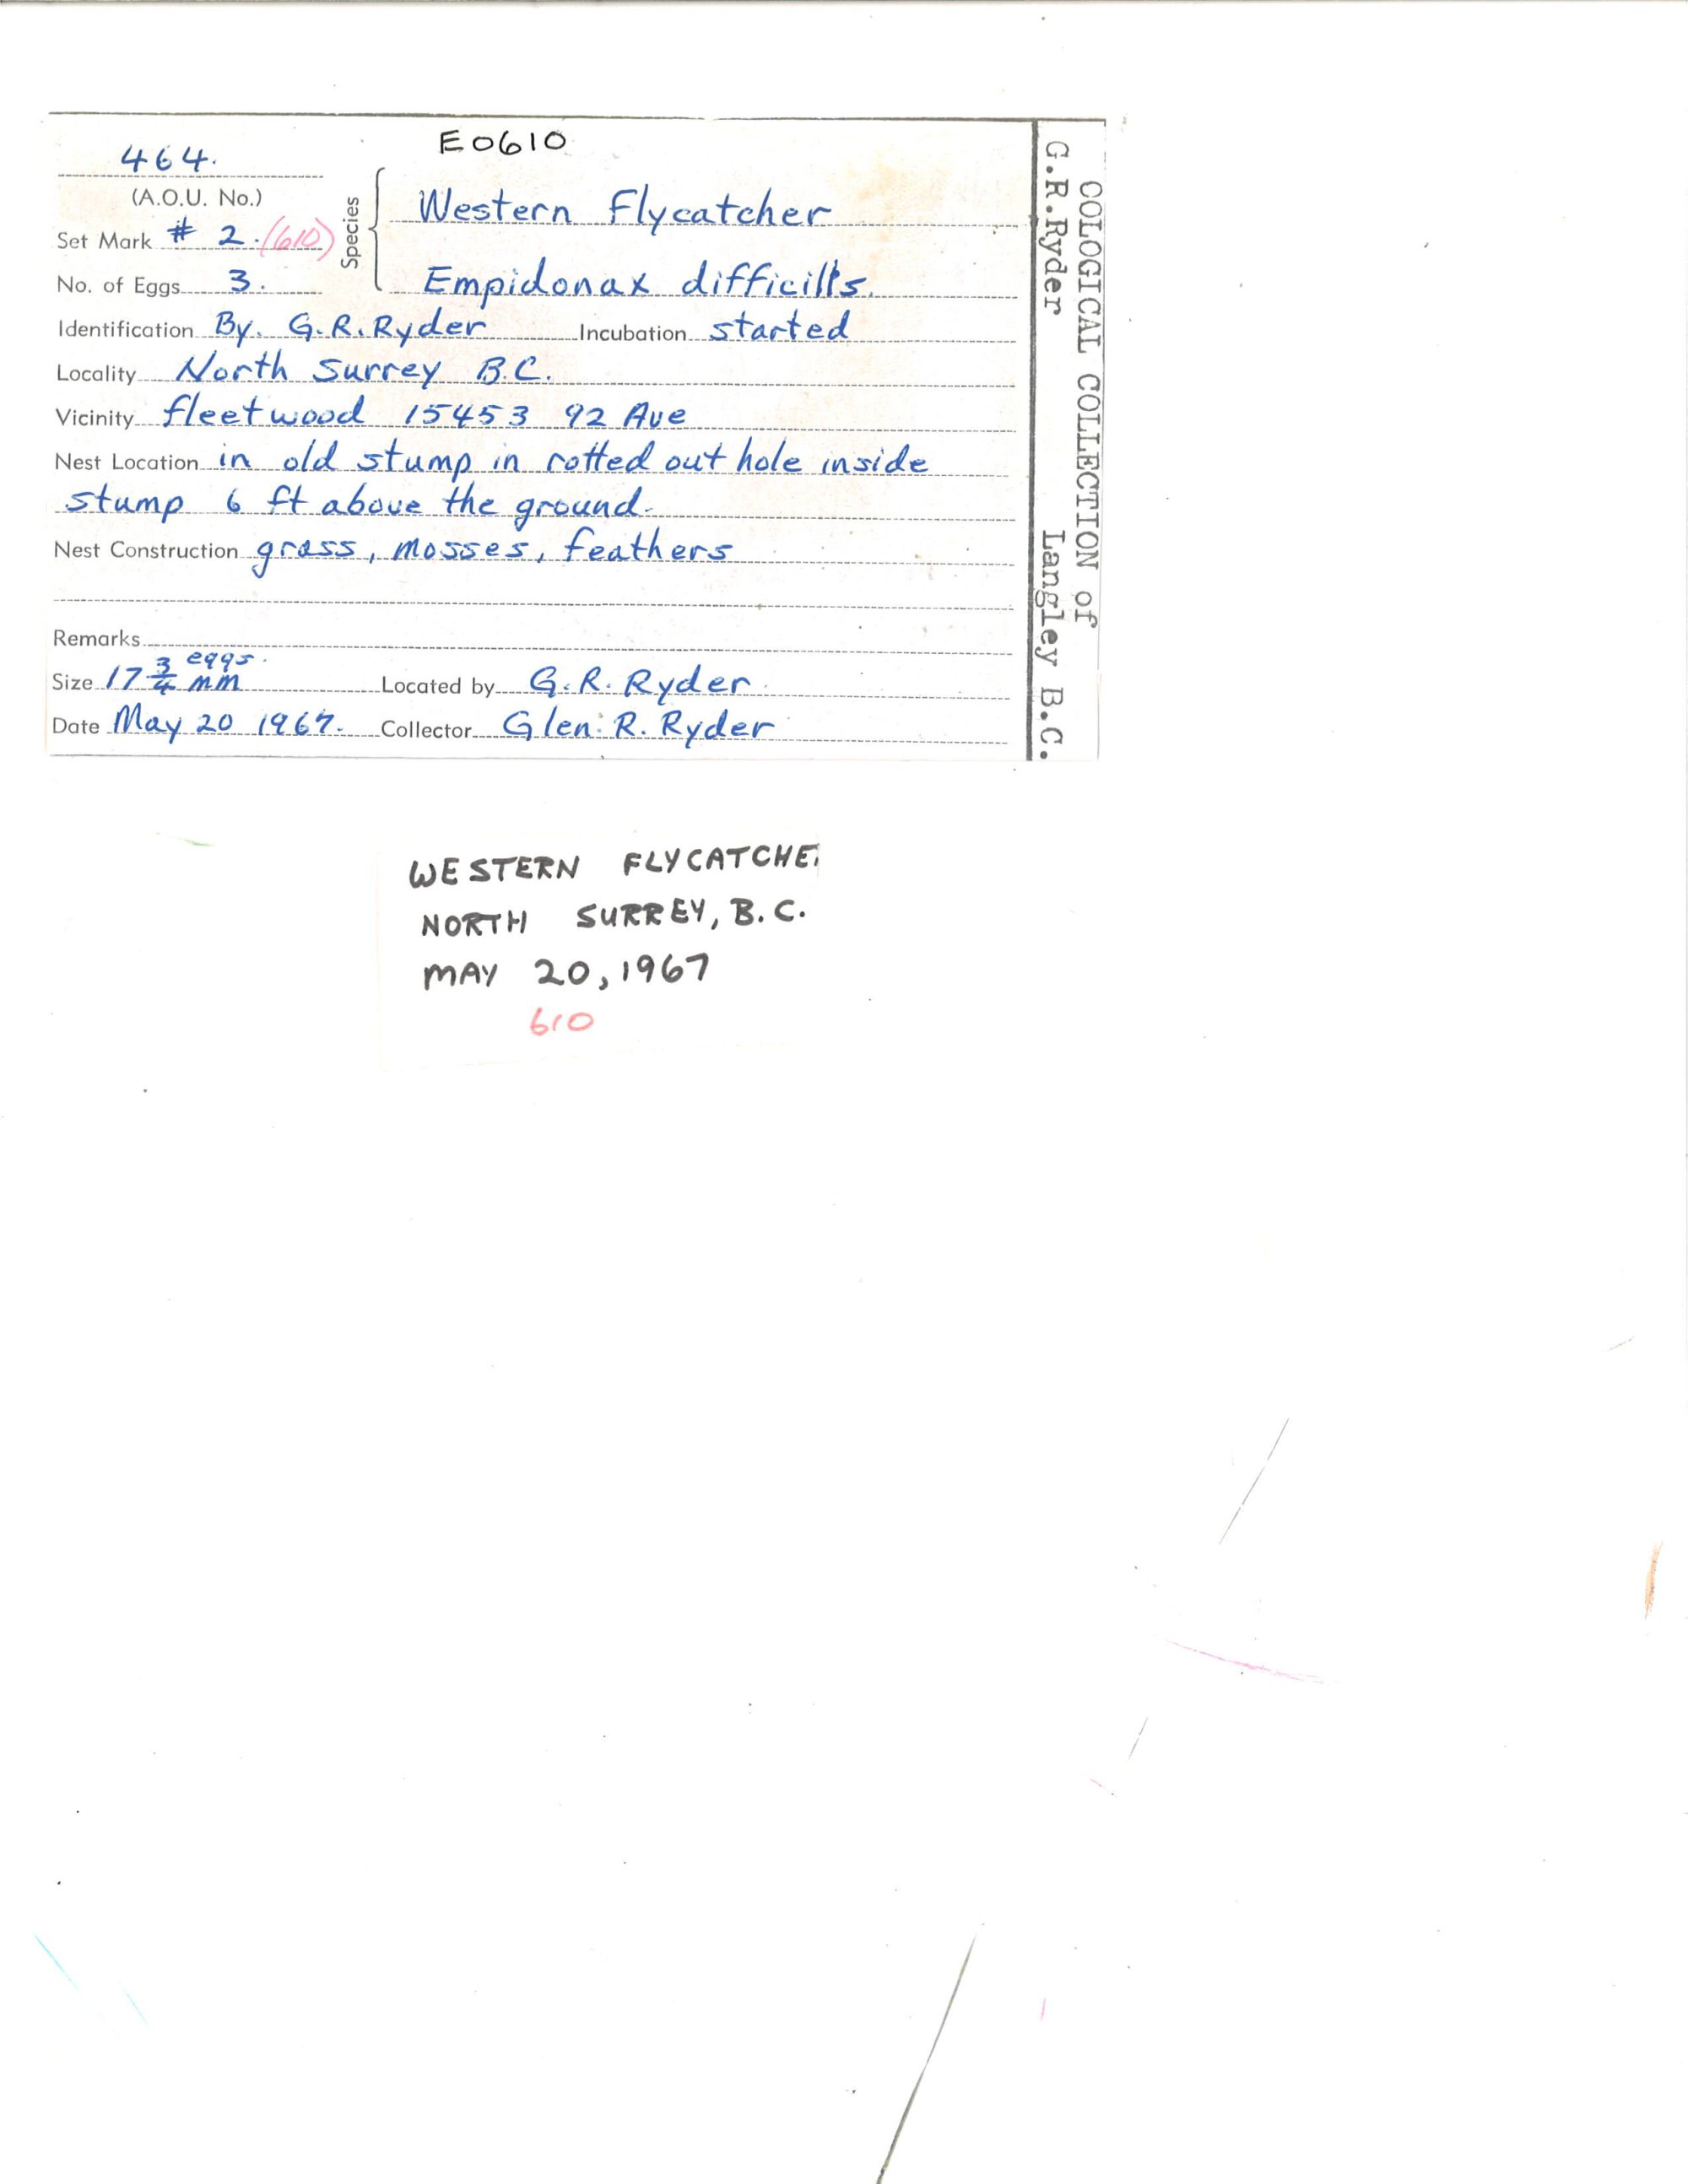 E0610
464.
(A.O.U. No.)
Set Mark # 2. (610)
No. of Eggs 3.
Species
Western Flycatcher
Empidonax difficilts.
Identification By. G.R.Ryder Incubation started
Locality North Surrey B.C.
Vicinity fleetwood 15453 92 Ave
Nest Location in old stump in rotted out hole inside
stump 6 ft above the ground.
Nest Construction grass, mosses, feathers
Remarks
eggs.
Size 17 3/4 mm Located by G.R. Ryder
Date May 20 1967. Collector Glen R. Ryder
OOLOGICAL COLLECTION of
G.R.Ryder Langley B.C.
WESTERN FLYCATCHE
NORTH SURREY, B.C.
MAY 20, 1967
610